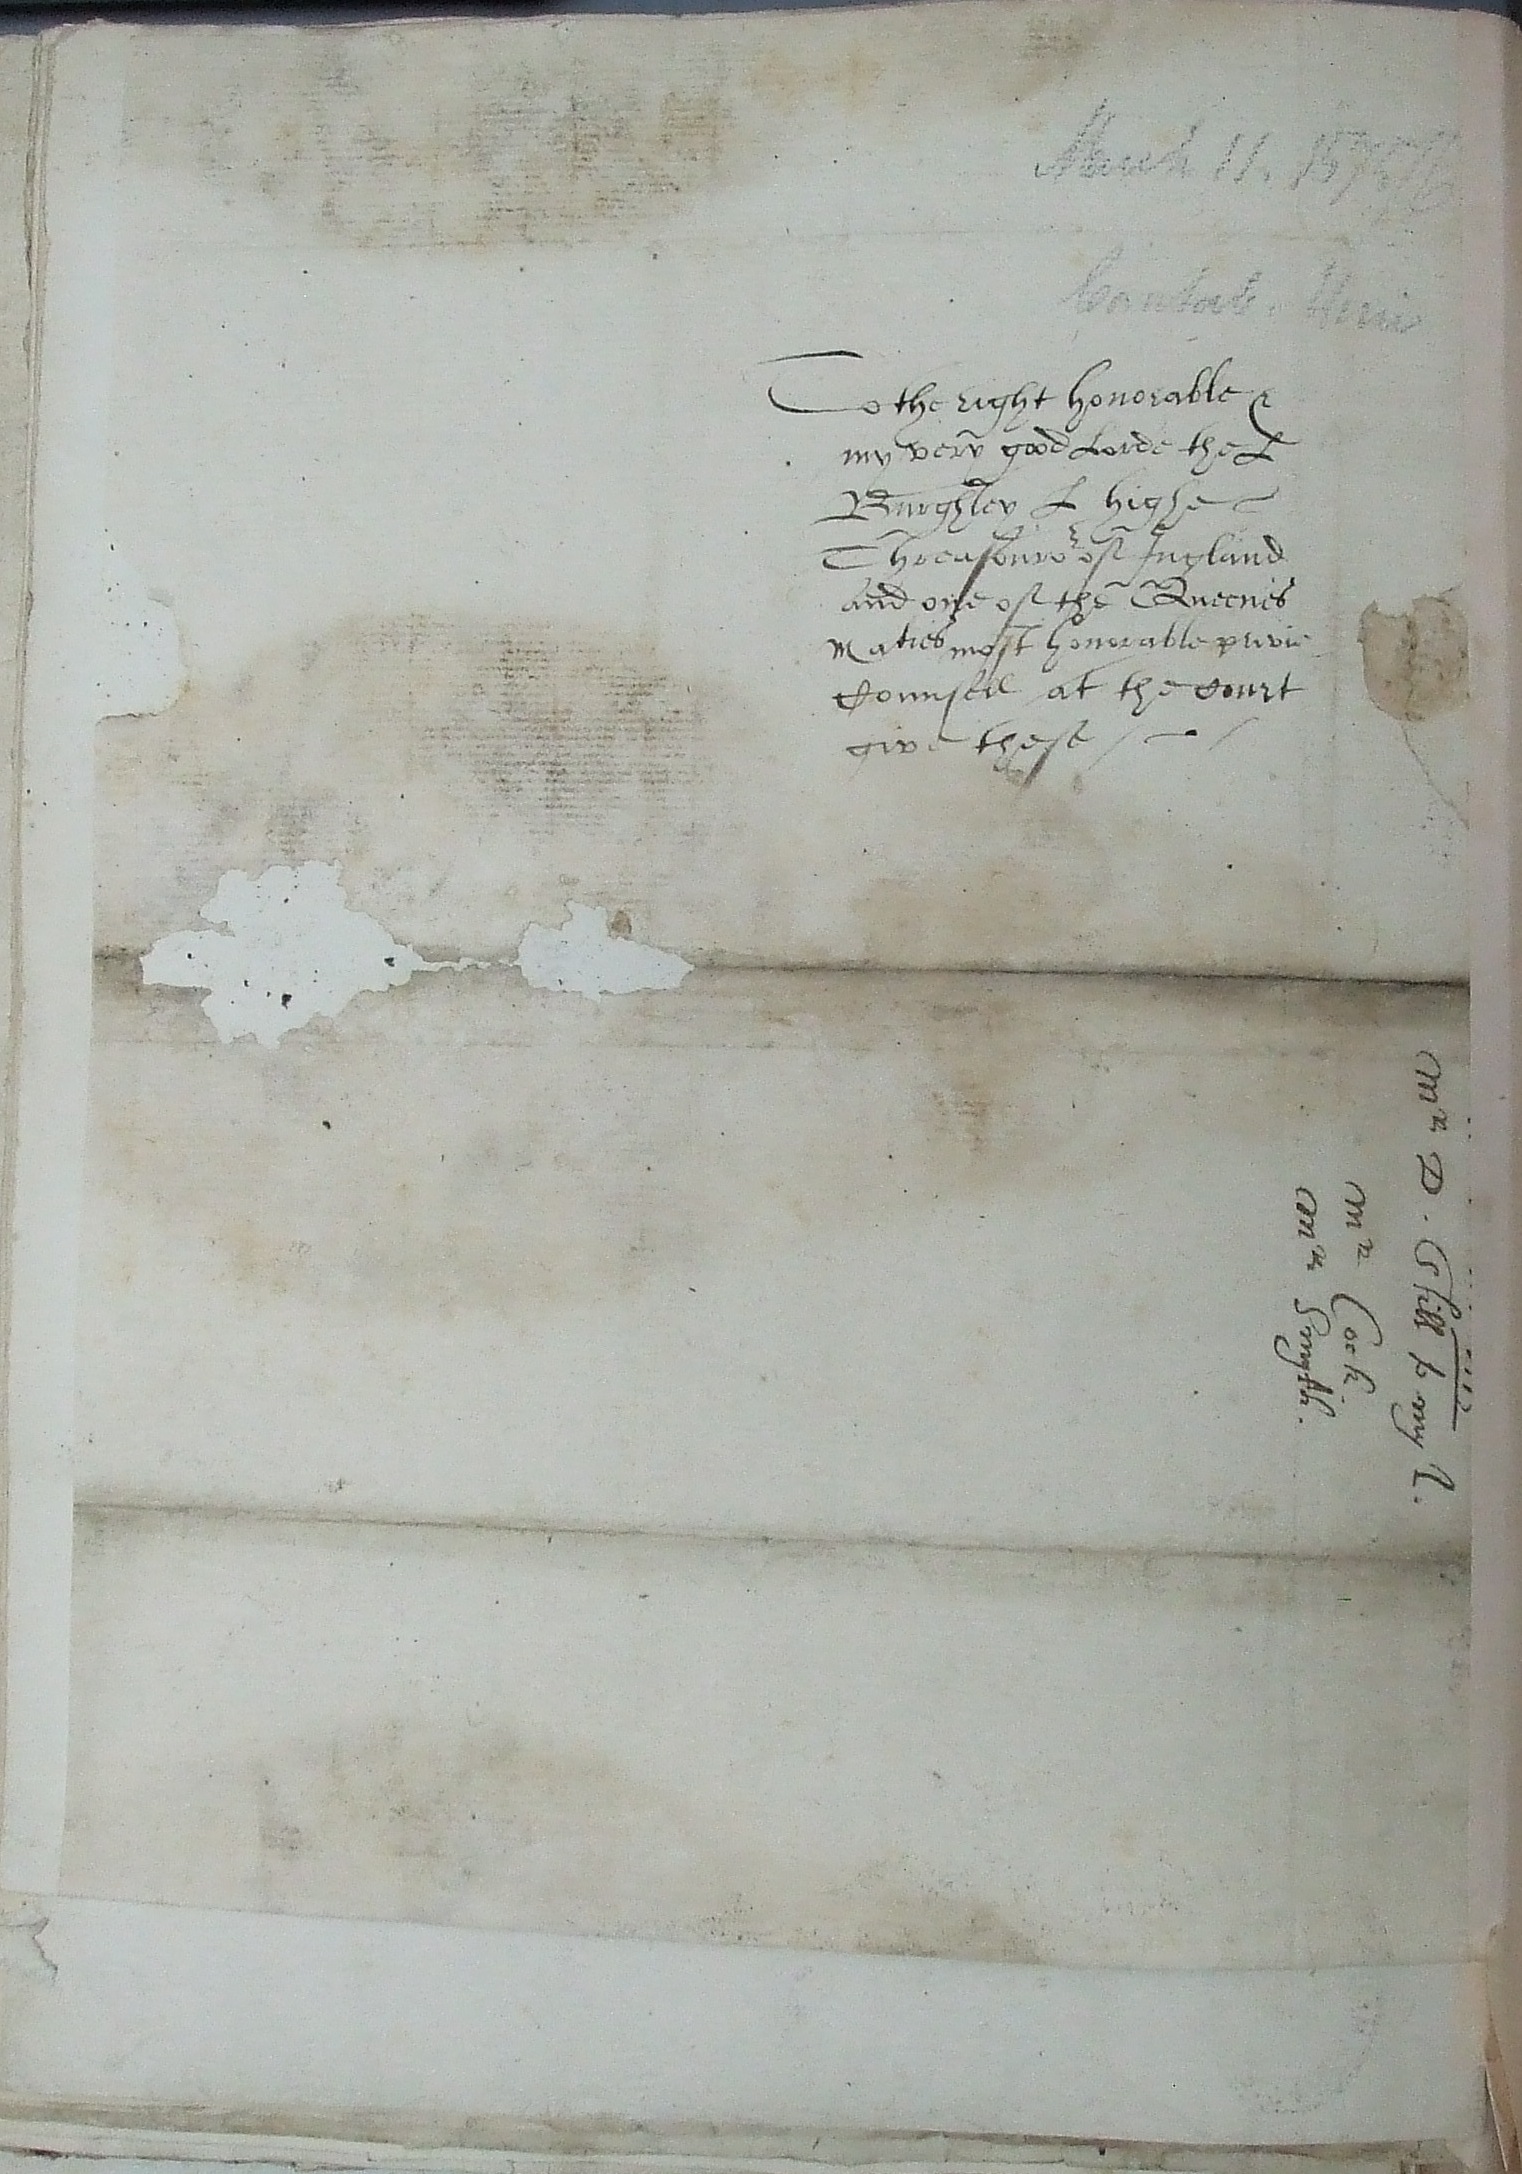 March 11. 1575/6
To the right honorable
my very good Lorde the L
Burghley L highe
Threasouror of Ingland
and one of the Queenes
Maties most honorable privie
Counseil at the Court
give these
Mr D. Still to my L.
Mr Cock.
Mr Smyth.